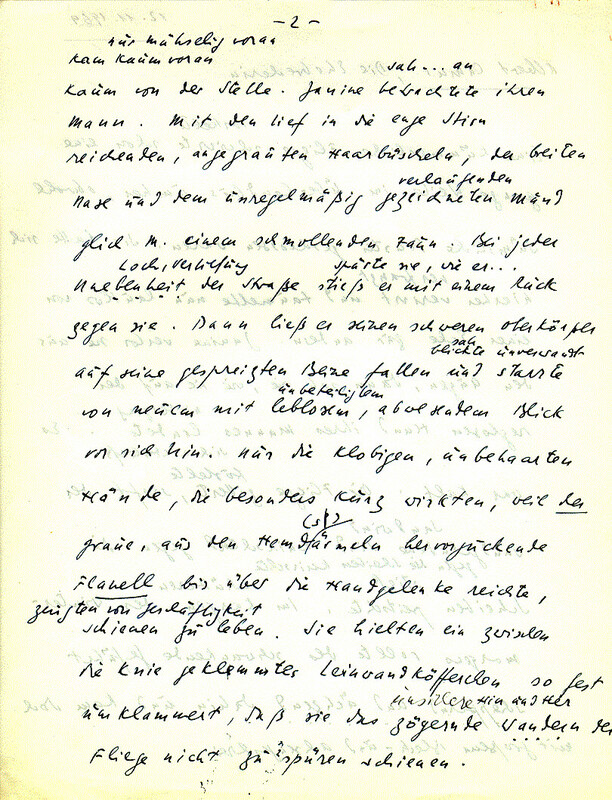 - 2 -
nur mühselig voran
kam kaum voran
sah... an
kaum von der Stelle. Janine betrachtete ihren
Mann. Mit den tief in die enge Stirn
reichenden, angegrauten Haarbüscheln, der breiten
verlaufenden
Nase und dem unregelmäßig gezeichneten Mund
glich M. einem schmollenden Faun. Bei jeder
Loch, Vertiefung
spürte sie, wie er...
Unebenheit der Straße stieß er mit einem Ruck
gegen sie. Dann ließ er seinen schweren Oberkörper
sah
blickte unverwandt
auf seine gespreizten Beine fallen und starrte
unbeteiligtem
von neuem mit leblosem, abwesendem Blick
vor sich hin. Nur die klobigen, unbehaarten
Hände, die besonders kurz wirkten, weil der
(s)?
graue, aus den Hemdärmeln hervorguckende
Flanell bis über die Handgelenke reichte,
zeugten von Geschäftigkeit
schienen zu leben. Sie hielten ein zwischen
die Knie geklemmtes Leinwandköfferchen so fest
unsichere Hin und Her
umklammert, daß sie das zögernde Wandern der
Fliege nicht zu spüren schienen.